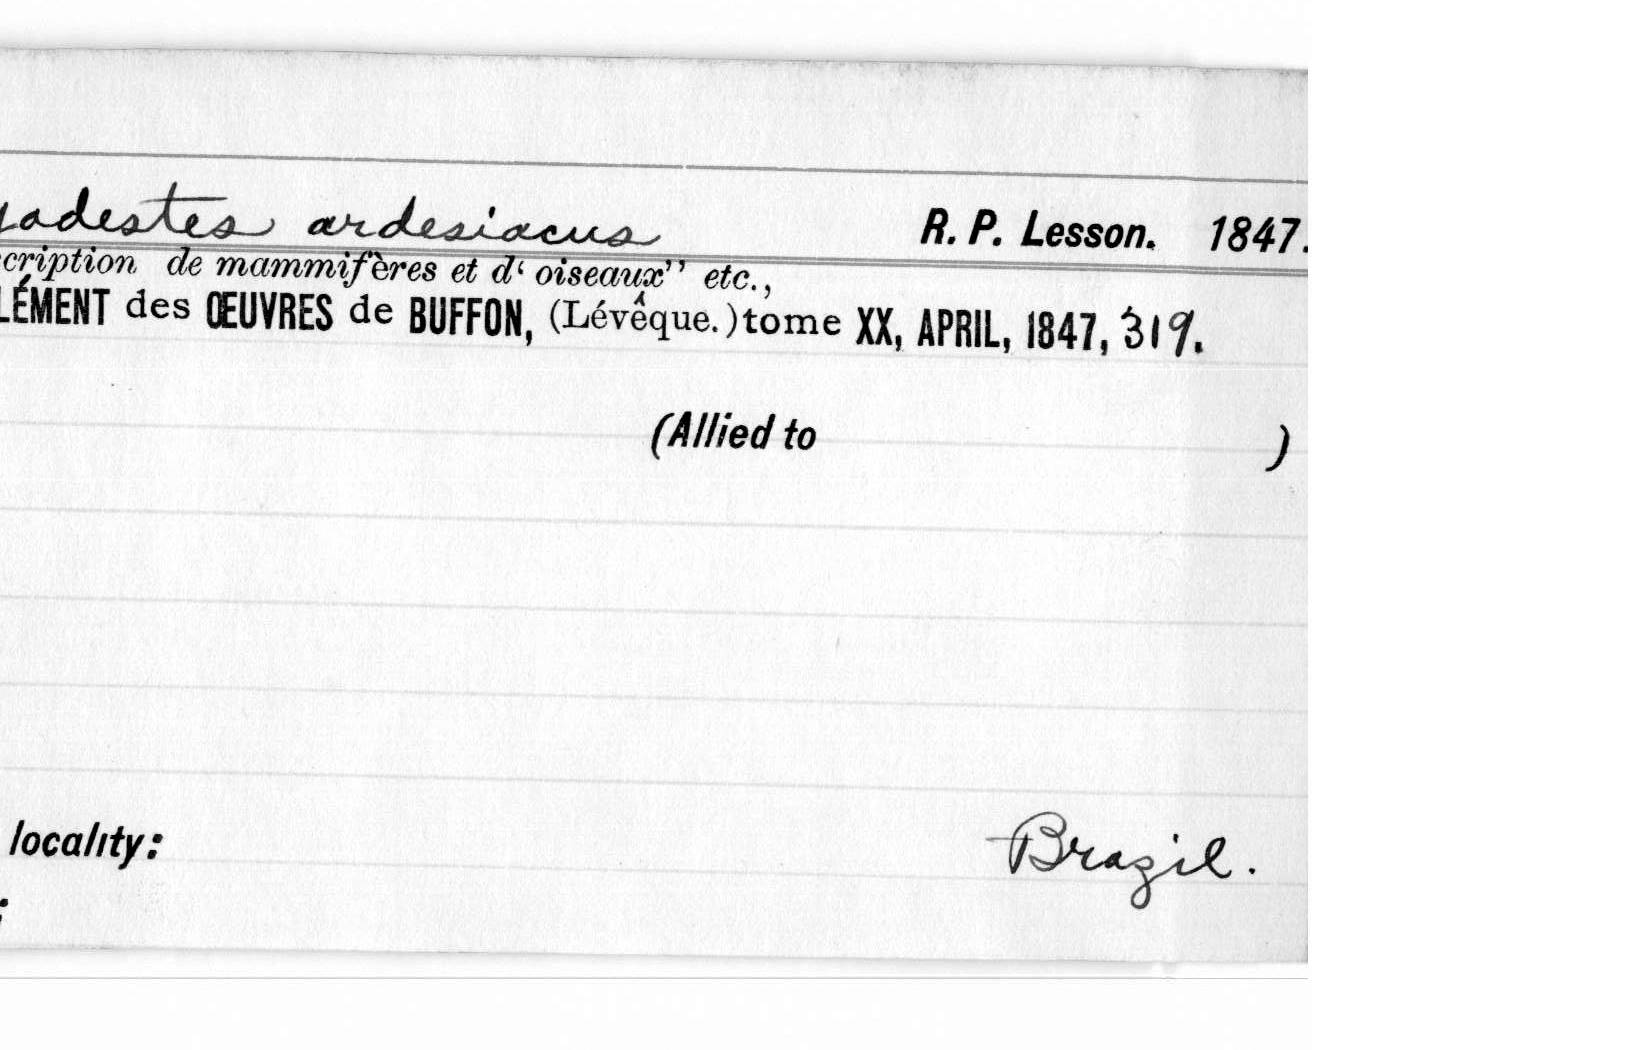 yadestes ardesiacus R. P. Lesson. 1847.
cription de mammifères et d‘ oiseaux” etc.,
LÉMENT des ŒUVRES de BUFFON, (Lévêque.) tome XX, APRIL, 1847, 319.
(Allied to )
locality: Brazil.
: